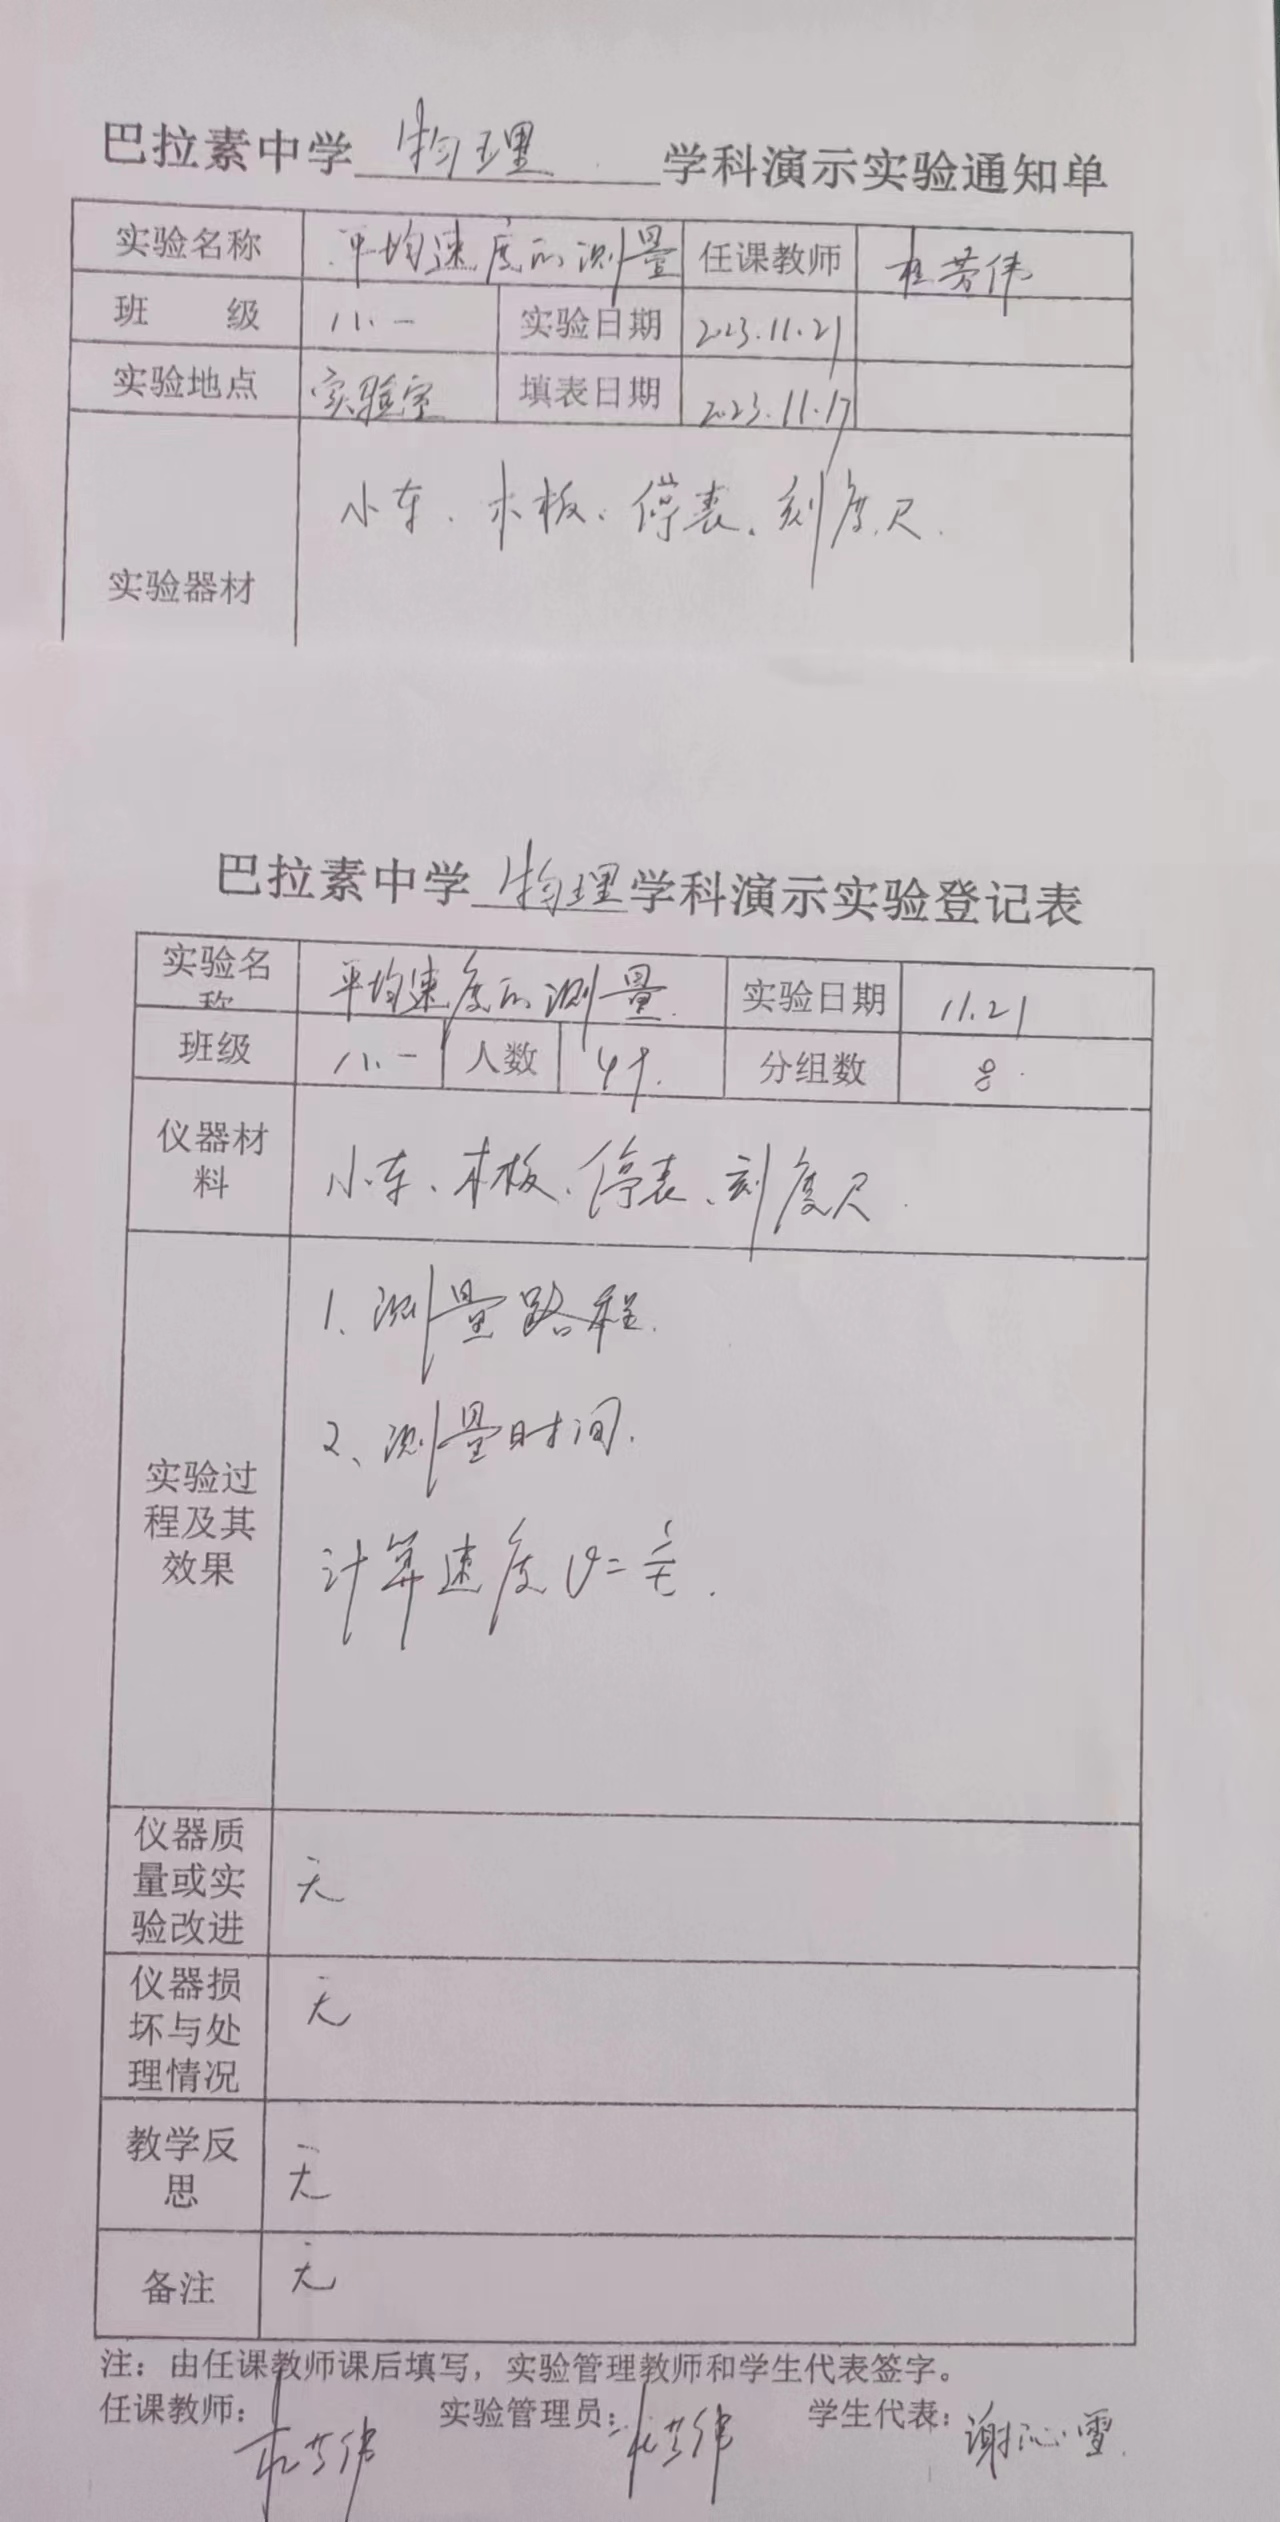 巴拉素中学 物理 学科演示实验通知单
实验名称 平均速度的测量 任课教师 杜芳伟
班 级 八.一 实验日期 2023.11.21
实验地点 实验室 填表日期 2023.11.17
小车、木板、停表、刻度尺.
实验器材
巴拉素中学 物理 学科演示实验登记表
实验名称 平均速度的测量. 实验日期 11.21
班级 八.一 人数 49. 分组数 8.
仪器材
料 小车、木板、停表、刻度尺.
1、测量路程.
2、测量时间.
实验过
程及其
效果
计算速度 v=s/t.
仪器质
量或实
验改进
无
仪器损
坏与处
理情况
无
教学反
思
无
备注 无
注：由任课教师课后填写，实验管理教师和学生代表签字。
任课教师： 实验管理员： 学生代表：谢沁雪.